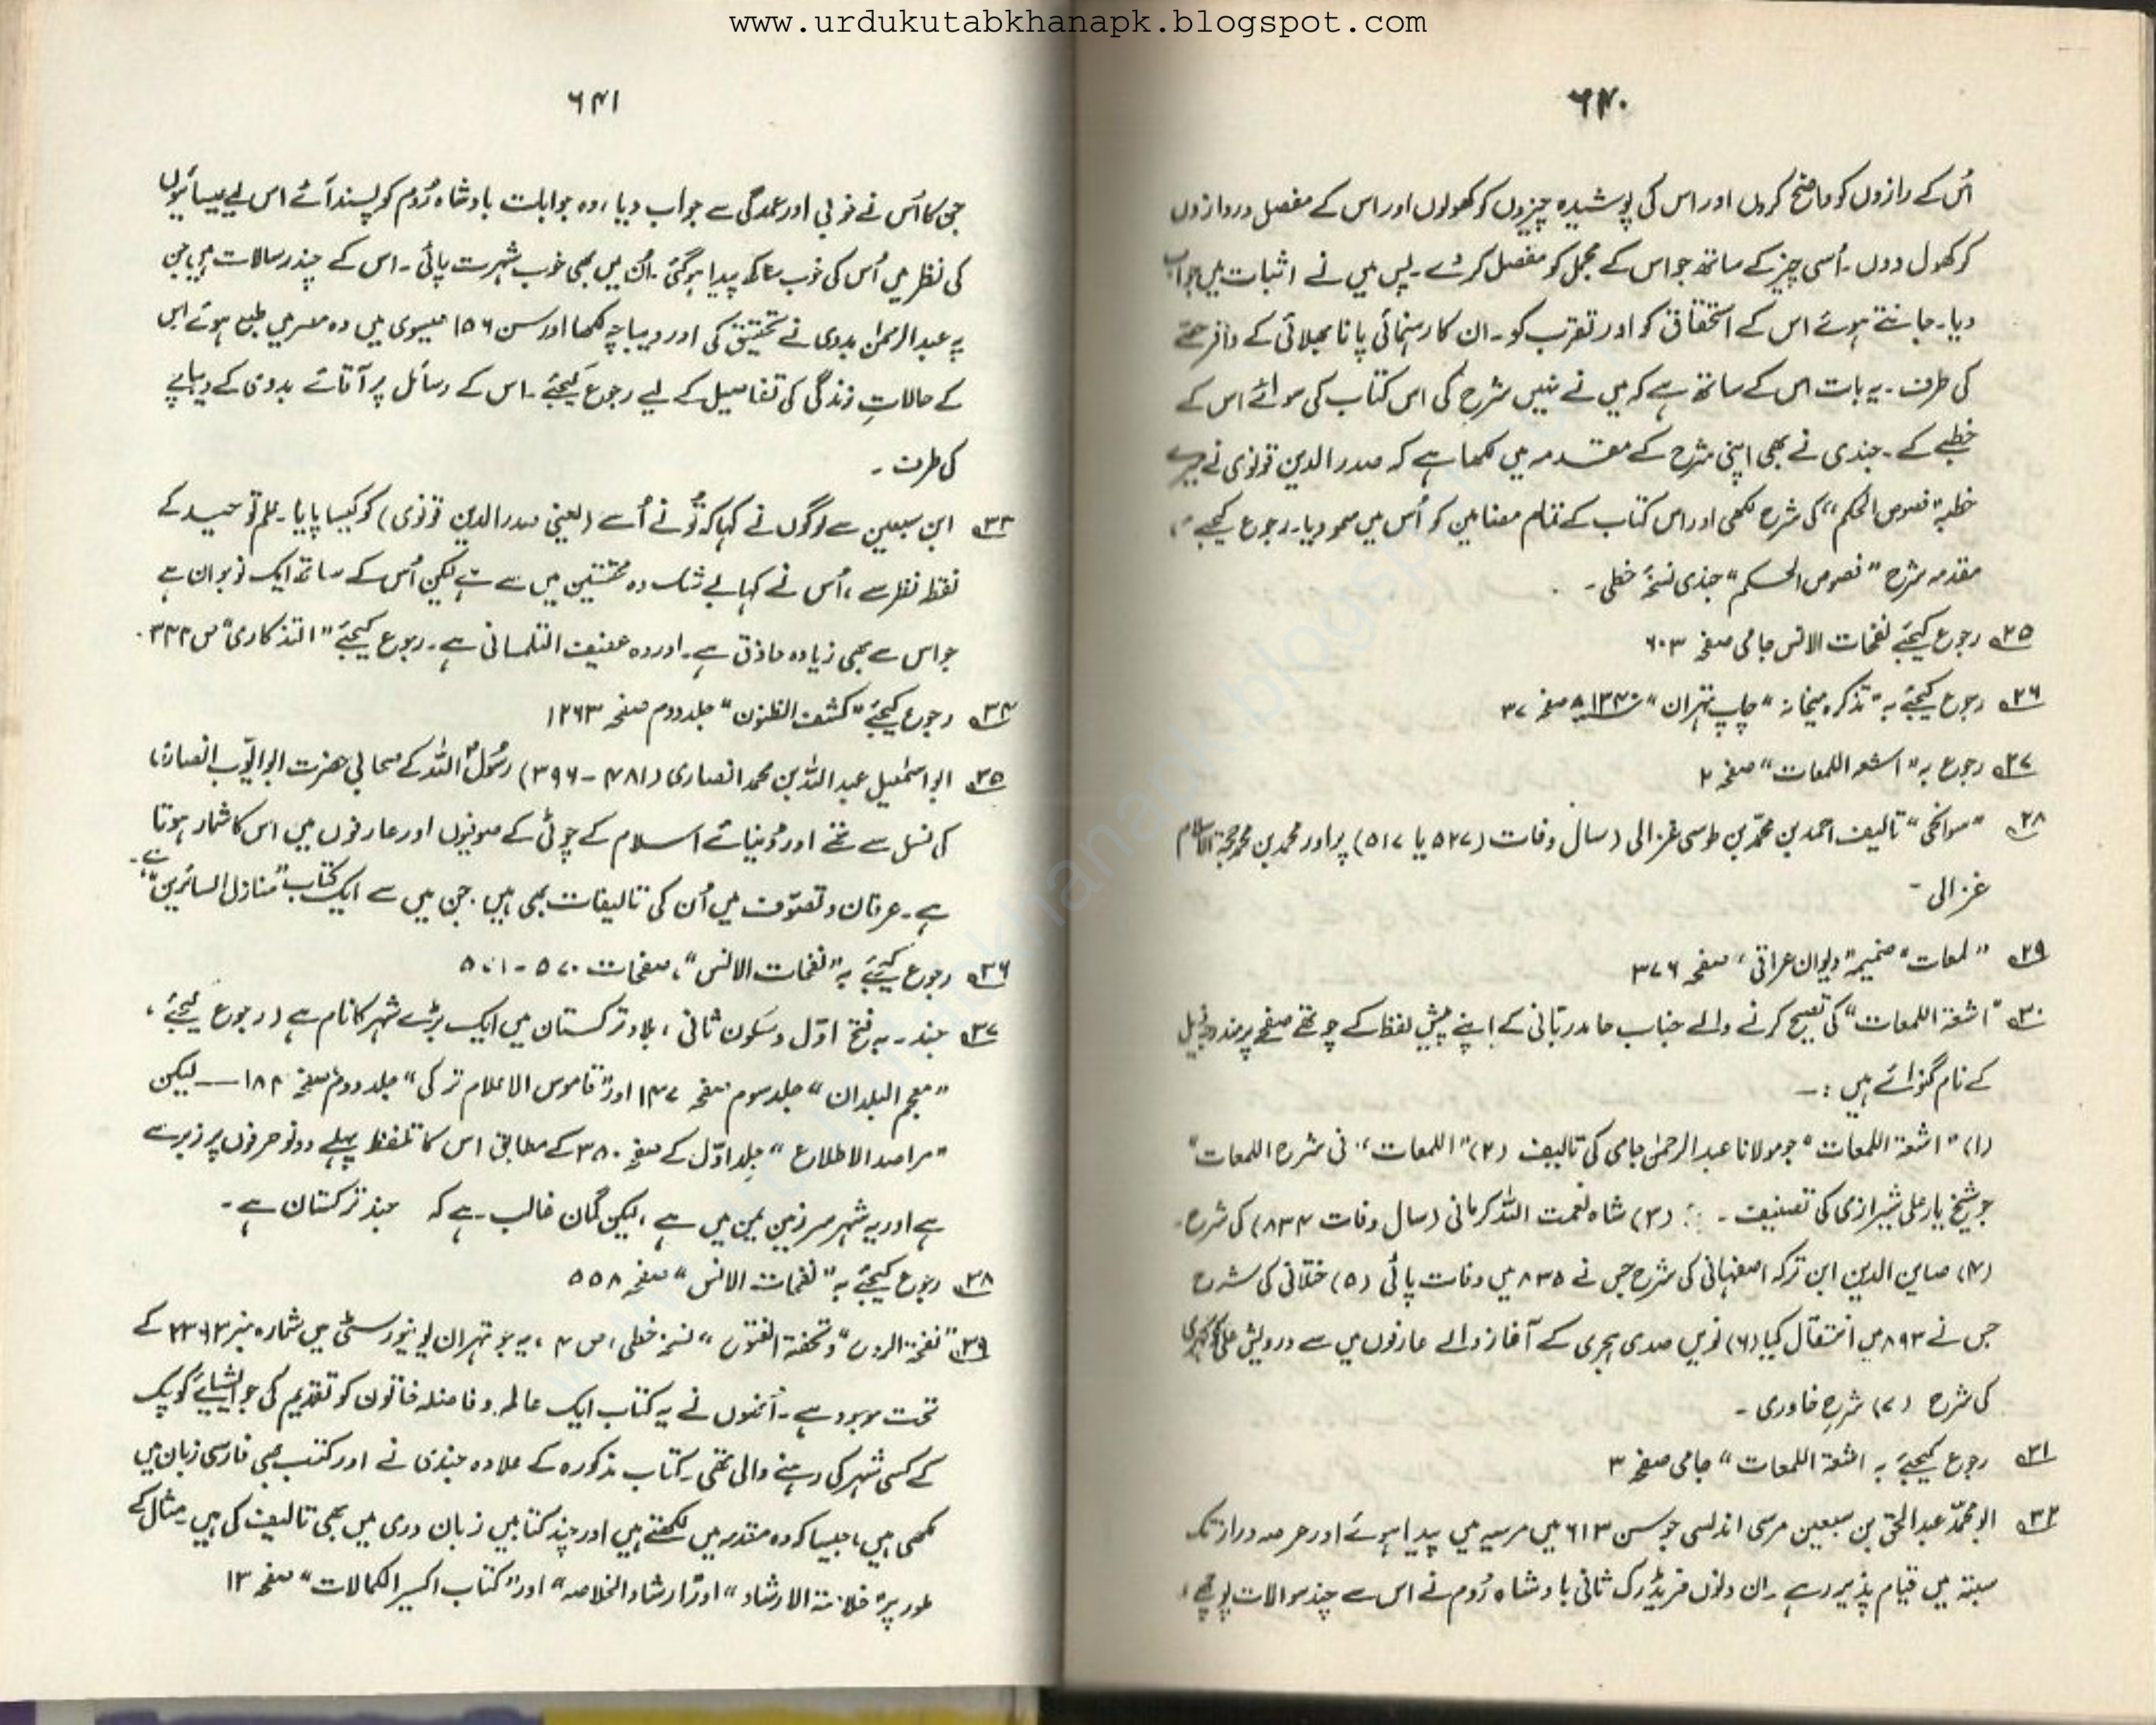 www.urdukutabkhanapk.blogspot.com
۶۴۰
اُس کے رازوں کو واضح کروں اور اس کی پوشیدہ چیزوں کو کھولوں اور اس کے مفصل دروازوں
کو کھول دوں۔ اُسی چیز کے ساتھ جو اس کے مجمل کو مفصل کر دے۔ پس میں نے اثبات میں جواب
دیا۔ جانتے ہوئے اس کے استحقاق کو اور تقرب کو۔ ان کا رہنمائی پانا بھلائی کے وافر حصّے
کی طرف۔ یہ بات اس کے ساتھ ہے کہ میں نے نہیں شرح کی اس کتاب کی سوائے اس کے
خطبے کے۔ جندی نے بھی اپنی شرح کے مقدمہ میں لکھا ہے کہ صدر الدین قونوی نے میرے
خطبہ "فصوص الحکم" کی شرح لکھی اور اس کتاب کے تمام مضامین کو اُس میں سمو دیا۔ رجوع کیجیے
مقدمہ شرح "فصوص الحکم" جندی نسخۂ خطی۔
۲۵ رجوع کیجئے نفحات الانس جامی صفحہ ۶۰۳
۲۶ رجوع کیجئے بہ "تذکرہ میخانہ" چاپ تہران "۱۳۴۰ھ صفحہ ۳۷
۲۷ رجوع بہ "اشعۃ اللمعات" صفحہ ۲
۲۸ "سوانح" تالیف احمد بن محمّد بن طوسی غزالی (سال وفات (۵۲۷ یا ۵۱۷) برادر محمد بن محمد حجۃ الاسلام
غزالی۔
۲۹ "لمعات" ضمیمہ "دیوان عراقی، صفحہ ۳۷۶
۳۰ "اشعۃ اللمعات" کی تصحیح کرنے والے جناب حامد ربّانی کے اپنے پیش لفظ کے چوتھے صفحے پر مندرجہ ذیل
کے نام گنوائے ہیں :—
(۱) "اشعۃ اللمعات" جو مولانا عبد الرحمٰن جامی کی تالیف (۲) "اللمعات" فی شرح اللمعات"
جو شیخ یار علی شیرازی کی تصنیف۔ (۳) شاہ نعمت اللہ کرمانی (سال وفات ۸۳۴) کی شرح۔
(۴) صاین الدین ابن ترکہ اصفہانی کی شرح جس نے ۸۳۵ میں وفات پائی (۵) ختلانی کی شرح
جس نے ۸۹۳ میں انتقال کیا (۶) نویں صدی ہجری کے آغاز والے عارفوں میں سے درویش علی
کی شرح (۷) شرح خاوری۔
۳۱ رجوع کیجئے بہ اشعۃ اللمعات" جامی صفحہ ۳
۳۲ ابو محمّد عبد الحق بن سبعین مرسی اندلسی جو سن ۶۱۳ میں مرسیہ میں پیدا ہوئے اور عرصہ دراز تک
سبتہ میں قیام پذیر رہے۔ ان دنوں فریڈرک ثانی بادشاہ رُوم نے اس سے چند سوالات پوچھے،
۶۴۱
جن کا اُس نے خوبی اور عمدگی سے جواب دیا، وہ جوابات بادشاہ رُوم کو پسند آئے اس لیے عیسائیوں
کی نظر میں اُس کی خوب ساکھ پیدا ہوگئی۔ اُن میں بھی خوب شہرت پائی۔ اس کے چند رسالات ہیں جن
پہ عبد الرحمٰن بدوی نے تحقیق کی اور دیباچہ لکھا اور سن ۱۵۶ عیسوی میں وہ مصر میں طبع ہوئے اس
کے حالاتِ زندگی کی تفاصیل کے لیے رجوع کیجئے۔ اس کے رسائل پر آقائے بدوی کے دیباچے
کی طرف۔
۳۳ ابن سبعین سے لوگوں نے کہا کہ تُو نے اُسے (یعنی صدر الدین قونوی) کو کیسا پایا۔ علم توحید کے
نقطۂ نظر سے، اُس نے کہا بے شک وہ محققین میں سے ہے لیکن اُس کے ساتھ ایک نوجوان ہے
جو اس سے بھی زیادہ حاذق ہے۔ اور وہ عفیف التلمسانی ہے۔ رجوع کیجئے "التذکاری" ص ۳۴۴۔
۳۴ رجوع کیجئے "کشف الظنون" جلد دوم صفحہ ۱۲۶۳
۳۵ ابو اسمٰعیل عبد اللہ بن محمد انصاری (۴۸۱ - ۳۹۶) رسُول اللہ کے صحابی حضرت ابو ایّوب انصاریؓ
کی نسل سے تھے اور دُنیائے اسلام کے چوٹی کے صوفیوں اور عارفوں میں اس کا شمار ہوتا
ہے۔ عرفان و تصوّف میں اُن کی تالیفات بھی ہیں۔ جن میں سے ایک کتاب "منازل السائرین" ہے۔
۳۶ رجوع کیجئے بہ "نفحات الانس"، صفحات ۵۷۰ - ۵۷۱
۳۷ جند۔ بہ فتح اوّل و سکون ثانی، بلاد ترکستان میں ایک بڑے شہر کا نام ہے (رجوع کیجئے،
"معجم البلدان" جلد سوم صفحہ ۱۴۷ اور "قاموس الاعلام ترکی" جلد دوم صفحہ ۱۸۴ — لیکن
"مراصد الاطلاع" جلد اوّل کے صفحہ ۳۸۰ کے مطابق اس کا تلفظ پہلے دونو حرفوں پر زبر سے
ہے اور یہ شہر سرزمین یمن میں ہے، لیکن گمان غالب ہے کہ جند ترکستان ہے۔
۳۸ رجوع کیجئے بہ "نفحات الانس" صفحہ ۵۵۸
۳۹ "نفحۃ الروح و تحفۃ الفتوح" نسخہ خطی، ص ۴، یہ جو تہران یونیورسٹی میں شمارہ نمبر ۲۳۶۳ کے
تحت موجود ہے۔ اُنھوں نے یہ کتاب ایک عالمہ و فاضلہ خاتون کو تقدیم کی جو ایشیائے کوچک
کے کسی شہر کی رہنے والی تھی۔ کتاب مذکورہ کے علاوہ جندی نے اور کتب بھی فارسی زبان میں
لکھی ہیں، جیسا کہ وہ مقدمہ میں لکھتے ہیں اور چند کتابیں زبان دری میں بھی تالیف کی ہیں۔ مثال کے
طور پر "خلاصۃ الارشاد" اور "ارشاد الخلاصہ" اور "کتاب اکسیر الکمالات" صفحہ ۱۳